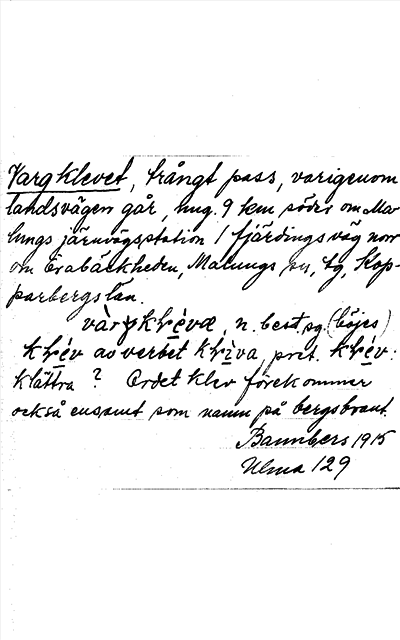 Vargklevet, trångt pass, varigenom
landsvägen går, ung. 9 km söder om Ma-
lungs järnvägsstation 1 fjärdingsväg norr
om Örabäckheden, Malungs sn, tg, Kop-
parbergs län.
n. best. sg. (böjes)
av verbet pret.
klättra? Ordet klev förekommer
också ensamt som namn på bergsbrant.
Bannbers 1915
Ulma 129